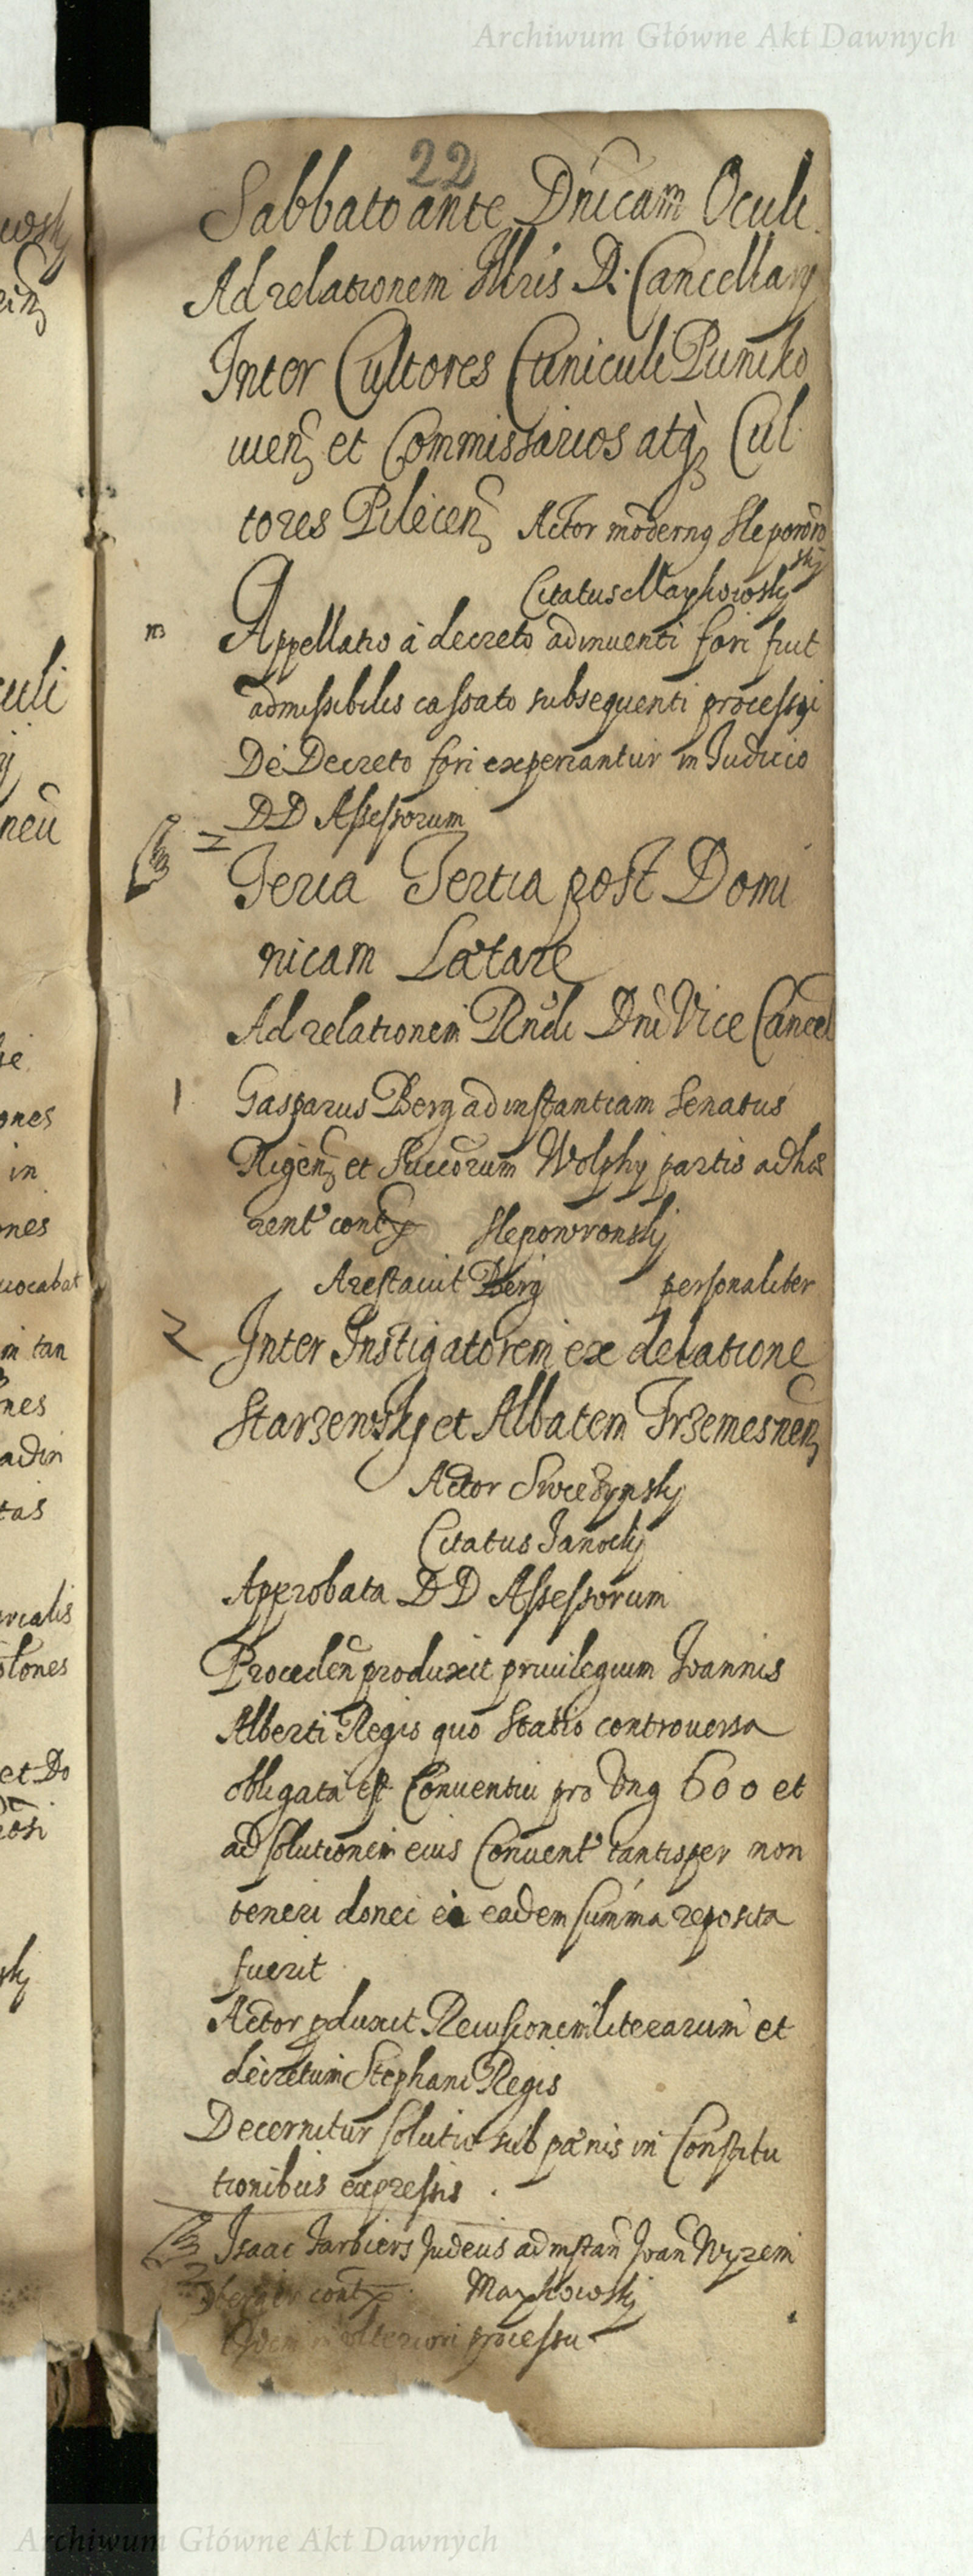 Archiwum Główne Akt Dawnych
22
Sabbato ante Dnicam Oculi
Ad relationem Illris D. Cancellarij
Inter Cultores Cuniculi Puniko
uien et Commissarios atq Cul
tores Pilecen Actor modernq Sleporow
skj
Citatus Maykowskj
Appellatio à decreto adinuenti fori fuit
admissibilis cassato subsequenti processui
De Decreto fori experiantur in Judicio
DD Assessorum
Feria Tertia post Domi
nicam Lætare
Ad relationem Rndi Dni Vice Cancel
1 Gasparus Berg ad instantiam Senatus
Rigen et Succorum Wolphij partis adhæ
rent cont Slepowronskj
Arestauit Berg personaliter
2 Inter Instigatorem ex delatione
Starzenskj et Abbatem Trzemesnen
Actor Swiezynskj
Citatus Janockj
Approbata DD Assessorum
Proceden produxit priuilegium Joannis
Alberti Regis quo Statio controuersa
obligata est Conuentui pro Ung 600 et
ad solutionem eius Conuent tantisper non
teneri donec ei eadem summa reposita
fuerit
Actor pduxit Reuisionem literarum et
decretum Stephani Regis
Decernitur solutio sub pœnis in Constitu
tionibus expressis .
Isaac Jarbiers Judeus ad instan Joan Wyzem
cont Maykowskj
ulteriori processu
ski
uli
neu
se
ones
in
ones
uocabat
m tan
nes
adin
tas
rcialis
olones
et Do
skj
Archiwum Główne Akt Dawnych